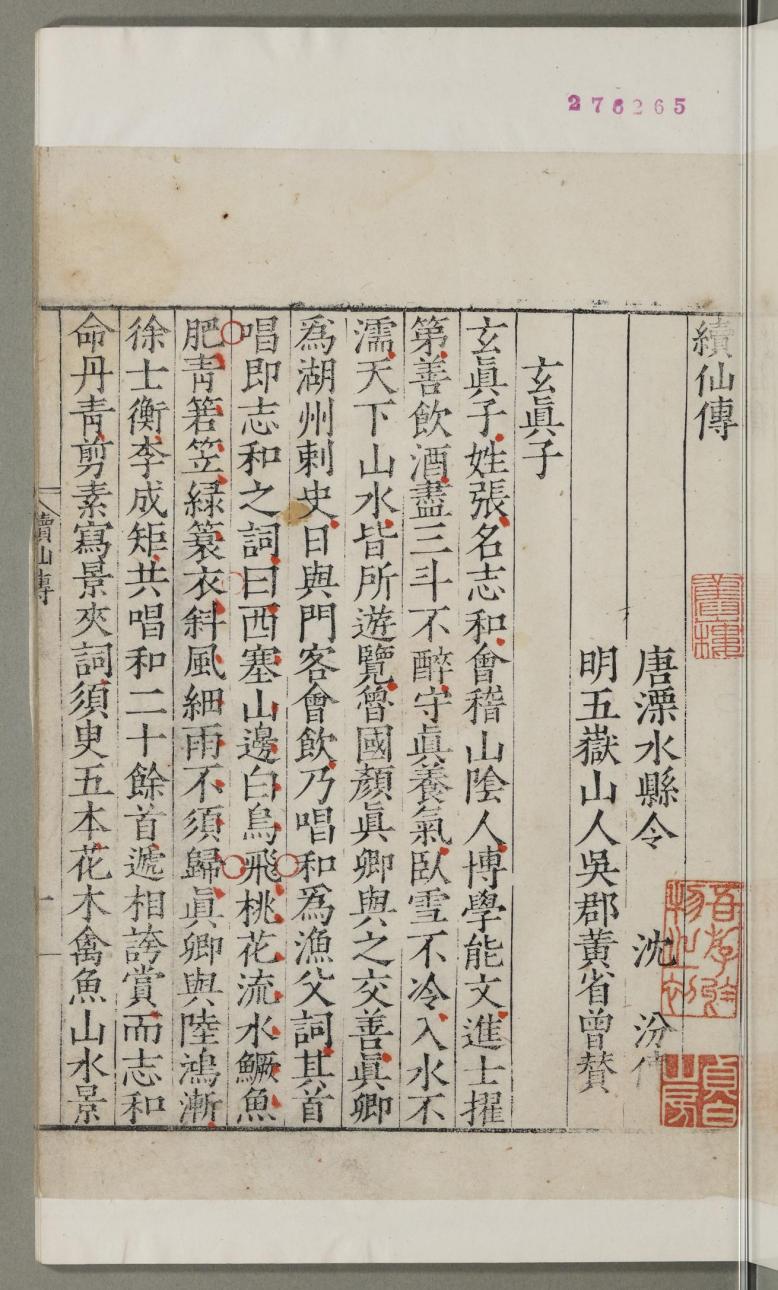 276265
續仙傳
唐溧水縣令 沈 汾傳
明五嶽山人吳郡黃省曾贊
玄眞子
玄眞子姓張名志和會稽山陰人博學能文進士擢
第善飮酒盡三斗不醉守眞養氣臥雪不冷入水不
濡天下山水皆所遊覽魯國顏眞卿與之交善眞卿
爲湖州刺史日與門客會飮乃唱和爲漁父詞其首
唱即志和之詞曰西塞山邊白鳥飛桃花流水鱖魚
肥靑箬笠緑簑衣斜風細雨不須歸眞卿與陸鴻漸
徐士衡李成矩共唱和二十餘首遞相誇賞而志和
命丹靑剪素寫景夾詞須臾五本花木禽魚山水景
續仙傳
一